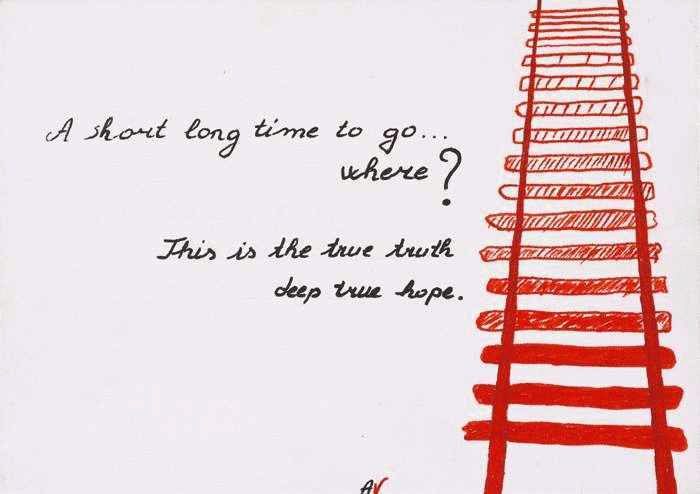 A short long time to go...
where?
This is the true truth
deep true hope.
AV